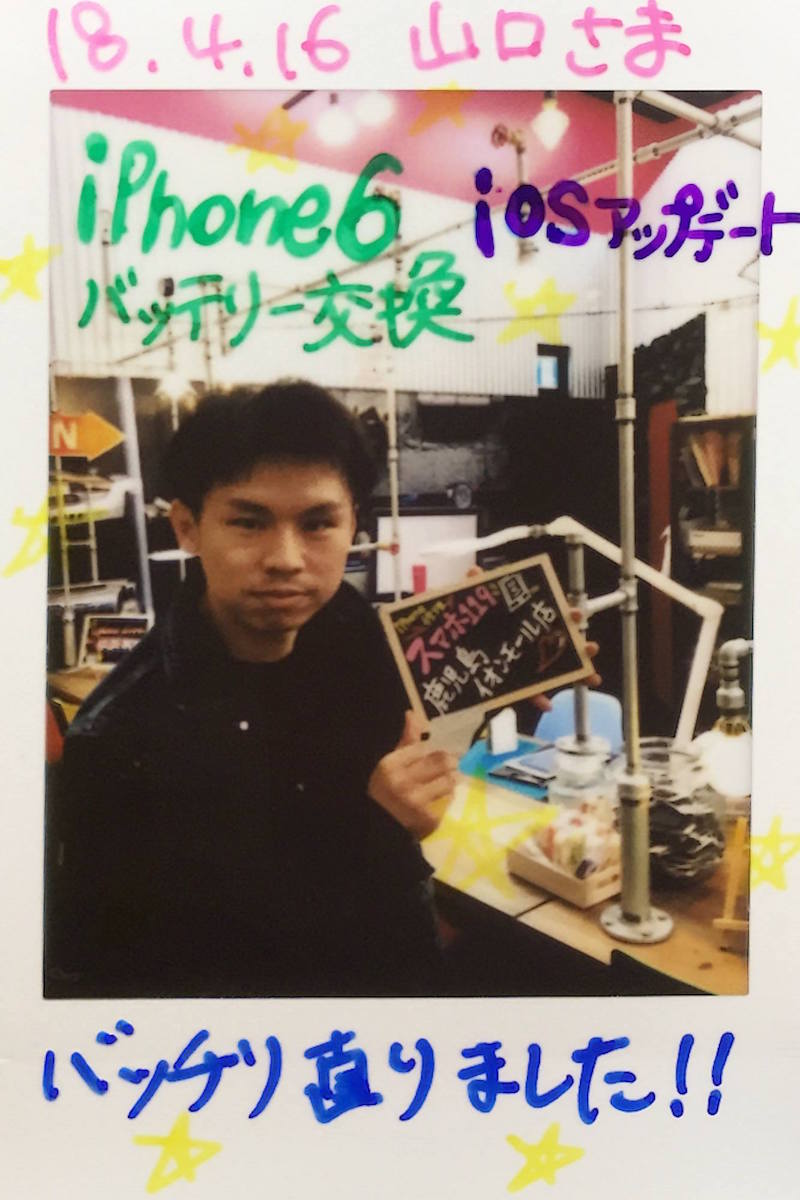 18.4.16 山口さま
iPhone6 iOSアップデート
バッテリー交換
N
スマホ119
鹿児島
イオンモール店
バッチリ直りました!!